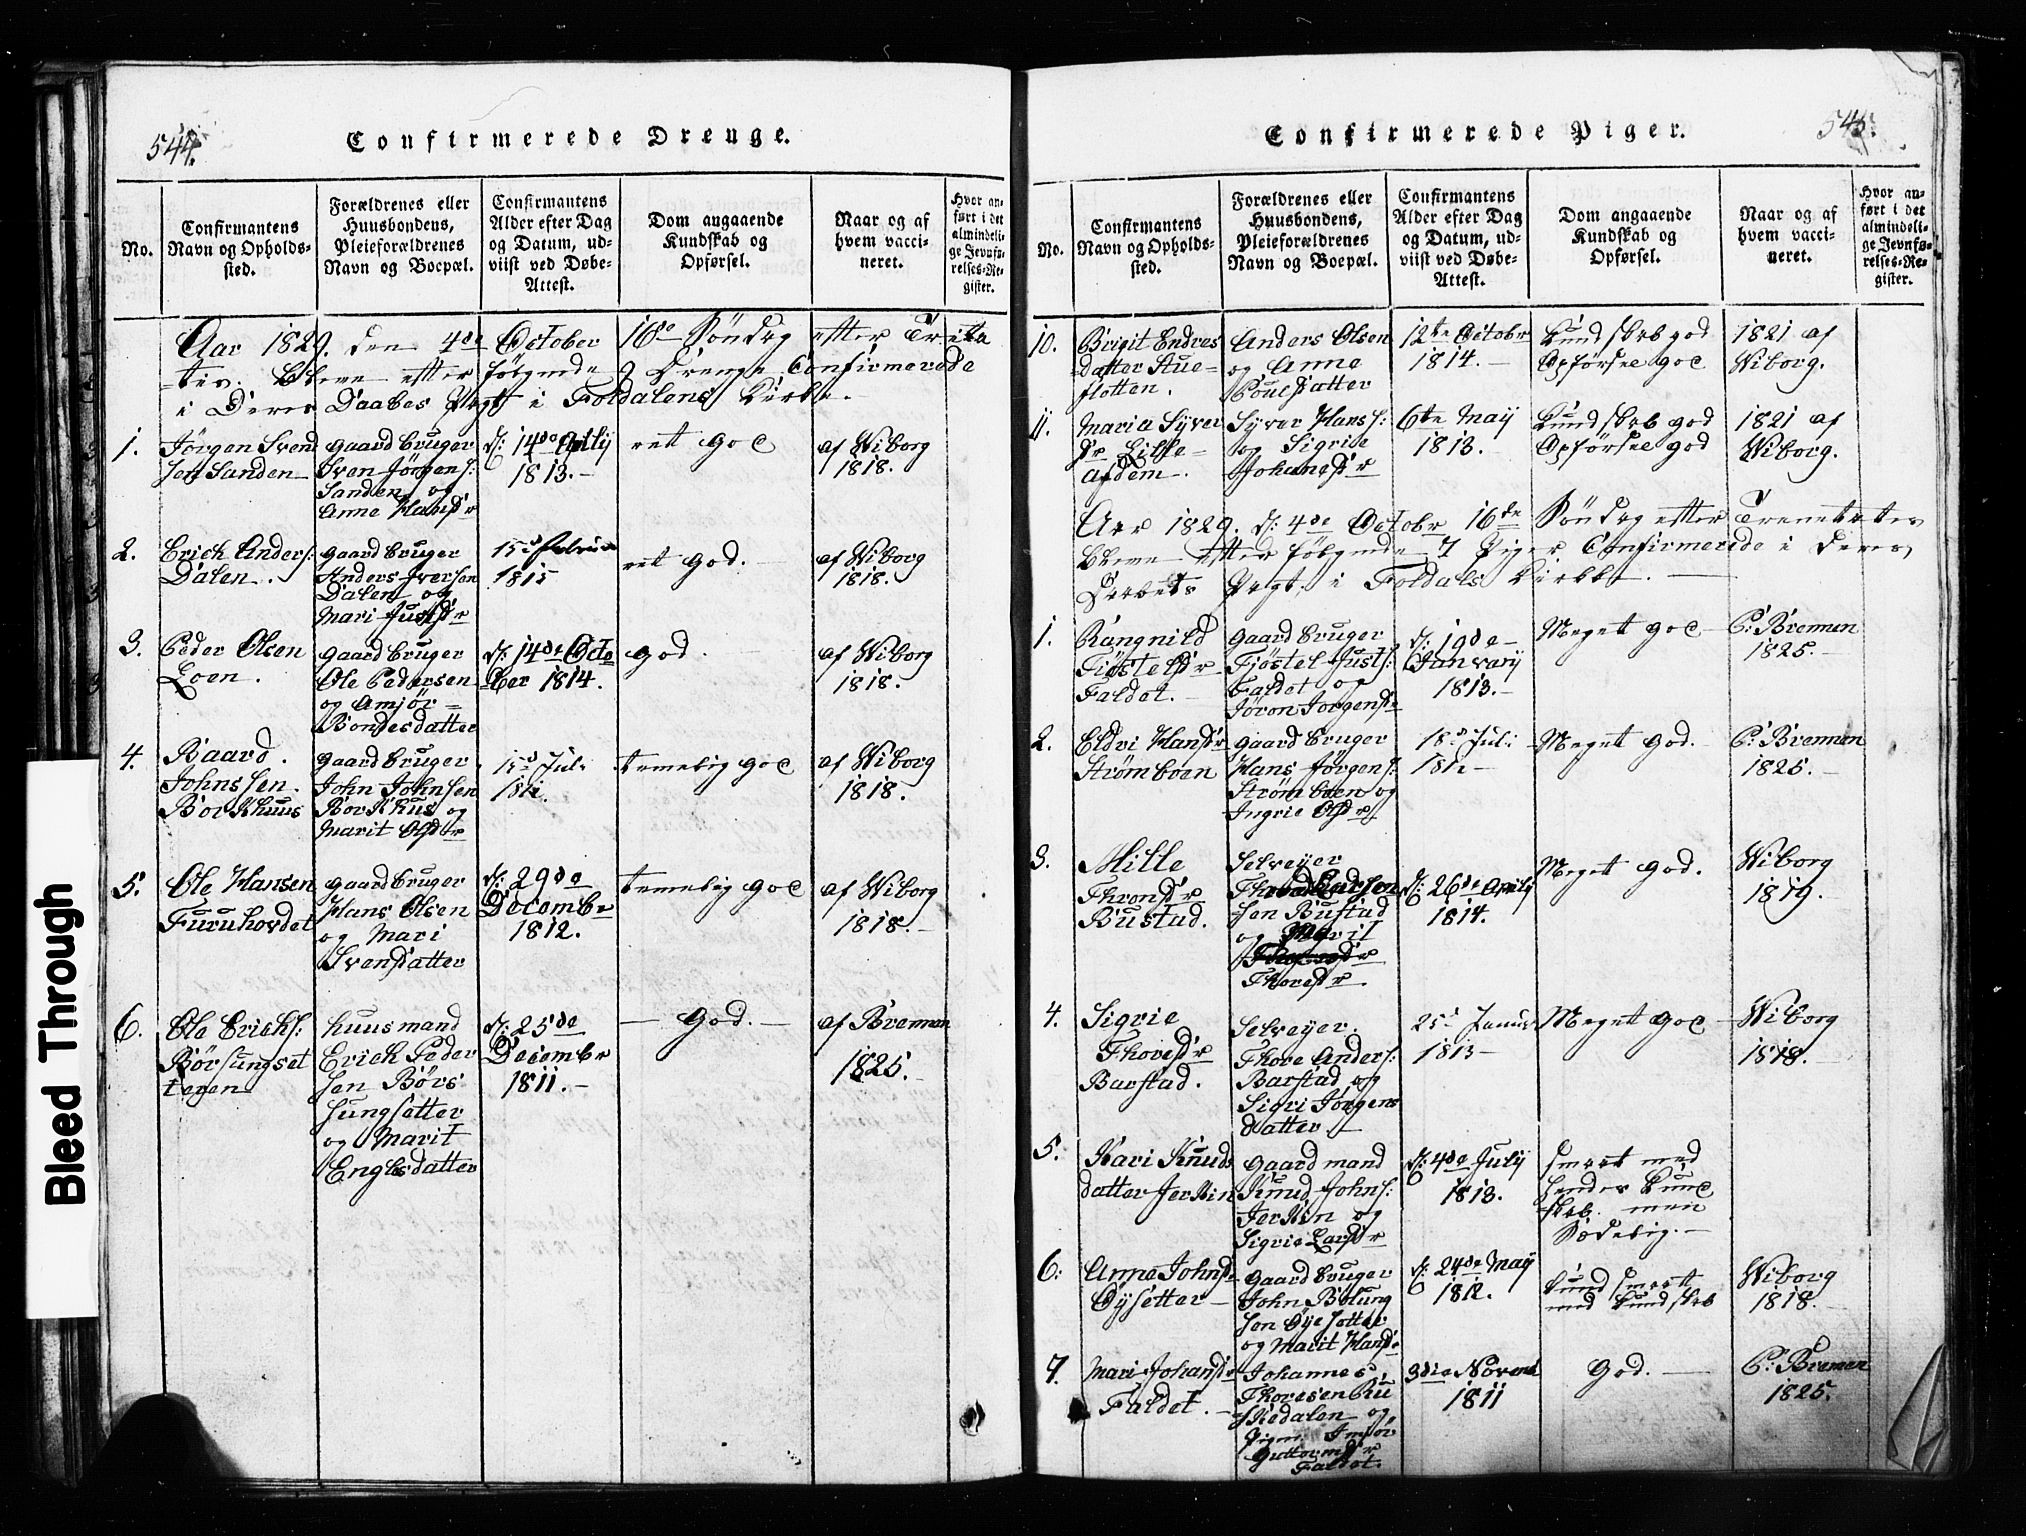 544.
Confirmerede Drenge.
No.
Confirmantens
Navn og Opholds-
sted.
Forældrenes eller
Huusbondens,
Pleieforældrenes
Navn og Boepæl.
Confirmantens
Alder efter Dag
og Datum, ud-
viist ved Døbe-
Attest.
Dom angaaende
Kundskab og
Opførsel.
Naar og af
hvem vacci-
neret.
Hvor an-
ført i det
almindeli-
ge Jevnfø-
relses-Re-
gister.
Aar 1829. den 4de October 16de Søndag efter Trita
tis. bleve efter følgende 9 Drenge Confirmerede
i Deres Daabes Pagt i Foldalens Kirke.
1.
Jörgen Svend
sen Sanden
gaardbruger
Sven Jörgens:
Sanden og
Anne Hansdr
d: 14de
1813.
ret god
af Wiborg
1818.
2.
Erich Anders:
Dalen.
gaardbruger
Anders Iversen
Dalen og
Mari Justsdr
15d Februar
1815
ret god.
af Wiborg
1818.
3.
Peder Olsen
Loen.
gaardbruger
Ole Pedersen
og Amjör
Bondesdatter
d: 14de Octo
ber 1814.
god.
af Wiborg
1818.
4.
Baard
Johnssen
Borkhuus
gaardbruger
John Johnsen
Borkhus og
Marit Olsdr
15d Juli
temelig god
af Wiborg
1818.
5.
Ole Hansen
Furuhovdet
gaardbruger
Hans Olsen
og Mari
Svensdatter
d: 29de
Decembr
1812.
temelig god
af Wiborg
1818.
6.
Ole Erichs:
Börsungset
teren
huusmand
Erich Peder
sen Börs
sungsetter
og Marit
Englesdatter
d: 25de
Decembr
1811.
God.
af Bremen
1825.
545.
Confirmerede Piger.
No.
Confirmantens
Navn og Opholds-
sted.
Forældrenes eller
Huusbondens,
Pleieforældrenes
Navn og Boepæl.
Confirmantens
Alder efter Dag
og Datum, ud-
viist ved Døbe-
Attest.
Dom angaaende
Kundskab og
Opførsel.
Naar og af
hvem vacci-
neret.
Hvor an-
ført i det
almindeli-
ge Jevnfø-
relses-Re-
gister.
10.
Brigit Endres
datter Stue-
flotten.
Anders Olsen
og Anne
Poulsdatter
12te Octobr
1814.
Kundskab god
Opförsel god
1821 af
Wiborg.
11.
Maria Syver
dr Lille-
afdem.
Syver Hans:
og Sigrid
Johanesdr
6te May
1813.
Kundskab god
Opförsel god
1821 af
Wiborg.
Aar 1829. d: 4de Octobr 16de Söndag efter Trenetatis
bleve efter følgende 7 Piger Confirmerede i deres
Daabets Pagt, i Foldals Kirke.
1.
Rangnild
Fiöstelsdr
Faldet.
gaardbruger
Fjöstel Justs:
Faldet og
Jöron Jorgensdr
d: 19de
January
1813.
Meget god
C: Bremen
1825.
2.
Eldri Hansdr
Strömboen
gaardbruger
Hans Jörgens:
Strömboen og
Ingrie Olsdr
18d Juli
Meget god.
C: Bremen
1825.
3.
Mille
Thronsdr
Bustad.
Selveyer
sen Bustad
og Marit
Thoresdr.
d: 26de April
1814.
Meget god.
Wiborg
1819.
4.
Sigrie
Thoresdr
Barstad.
Selveyer.
Thore Anders:
Barstad og
Sigri Jorgens
datter
25d Januar
1813
Meget god
Wiborg
1818.
5.
Kari Knuds
datter Jerkin
gaardmand
Knud Johns:
Jerkin og
Sigrie Larsdr
d: 4de July
1813.
smaat med
hendes Kund
skab. men
Sædelig.
6.
Anne Johnsdr
Öysetter
gaardbruger
John Bölung
sen Öyesetter
og Marit Hansdr
d: 24de May
1812.
smaatt
med Kundskab
Wiborg
1818.
7.
Mari Johansdr
Faldet.
Johannes
Thoresen Ru
skedalen og
Pigen
Guttormsdr
Faldet.
3die Novemb
1811
God.
C: Bremen
1825.
Bleed Through